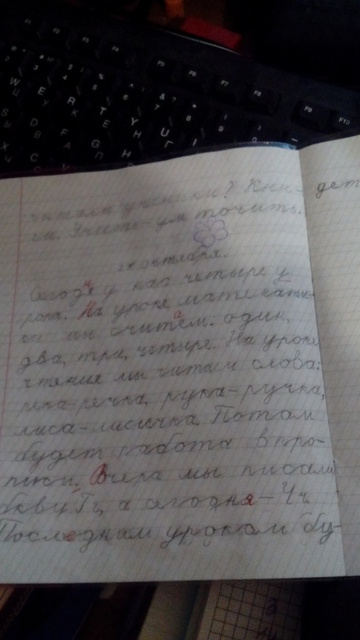 читали ученики? Кни- дет
ги. Учить-ум точить.
октября.
у нас четыре у
рока. На уроке математи-
ки мы считаем: один,
два, три, четыре. На уроке
чтения мы читали слова:
река-речка, рука-ручка,
лиса-лисичка. Потом
будет работа в про-
писи. Вчера мы писали
букву Гг, а сегодня-Чч
Последнам уроком бу-